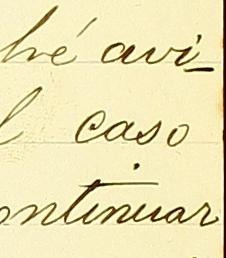 hé avi-
l caso
ontinuar